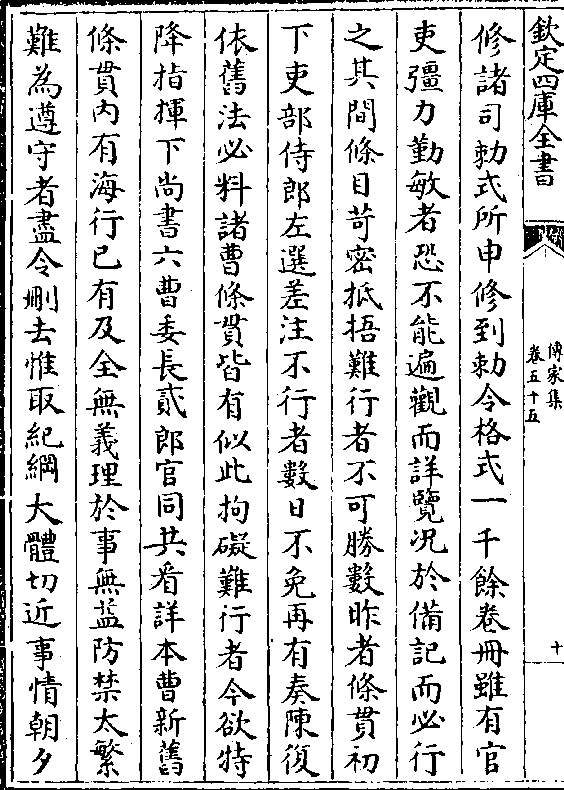 欽定四庫全書
傳家集
卷五十五
十
修諸司勅式所申修到勅令格式一千餘卷冊雖有官
吏彊力勤敏者恐不能遍觀而詳覽况於備記而必行
之其間條目苛密抵捂難行者不可勝數昨者條貫初
下吏部侍郎左選差注不行者數日不免再有奏陳復
依舊法必料諸曹條貫皆有似此拘礙難行者今欲特
降指揮下尚書六曹委長貳郎官同共看詳本曹新舊
條貫内有海行已有及全無義理於事無益防禁太繁
難為遵守者盡令刪去惟取紀綱大體切近事情朝夕